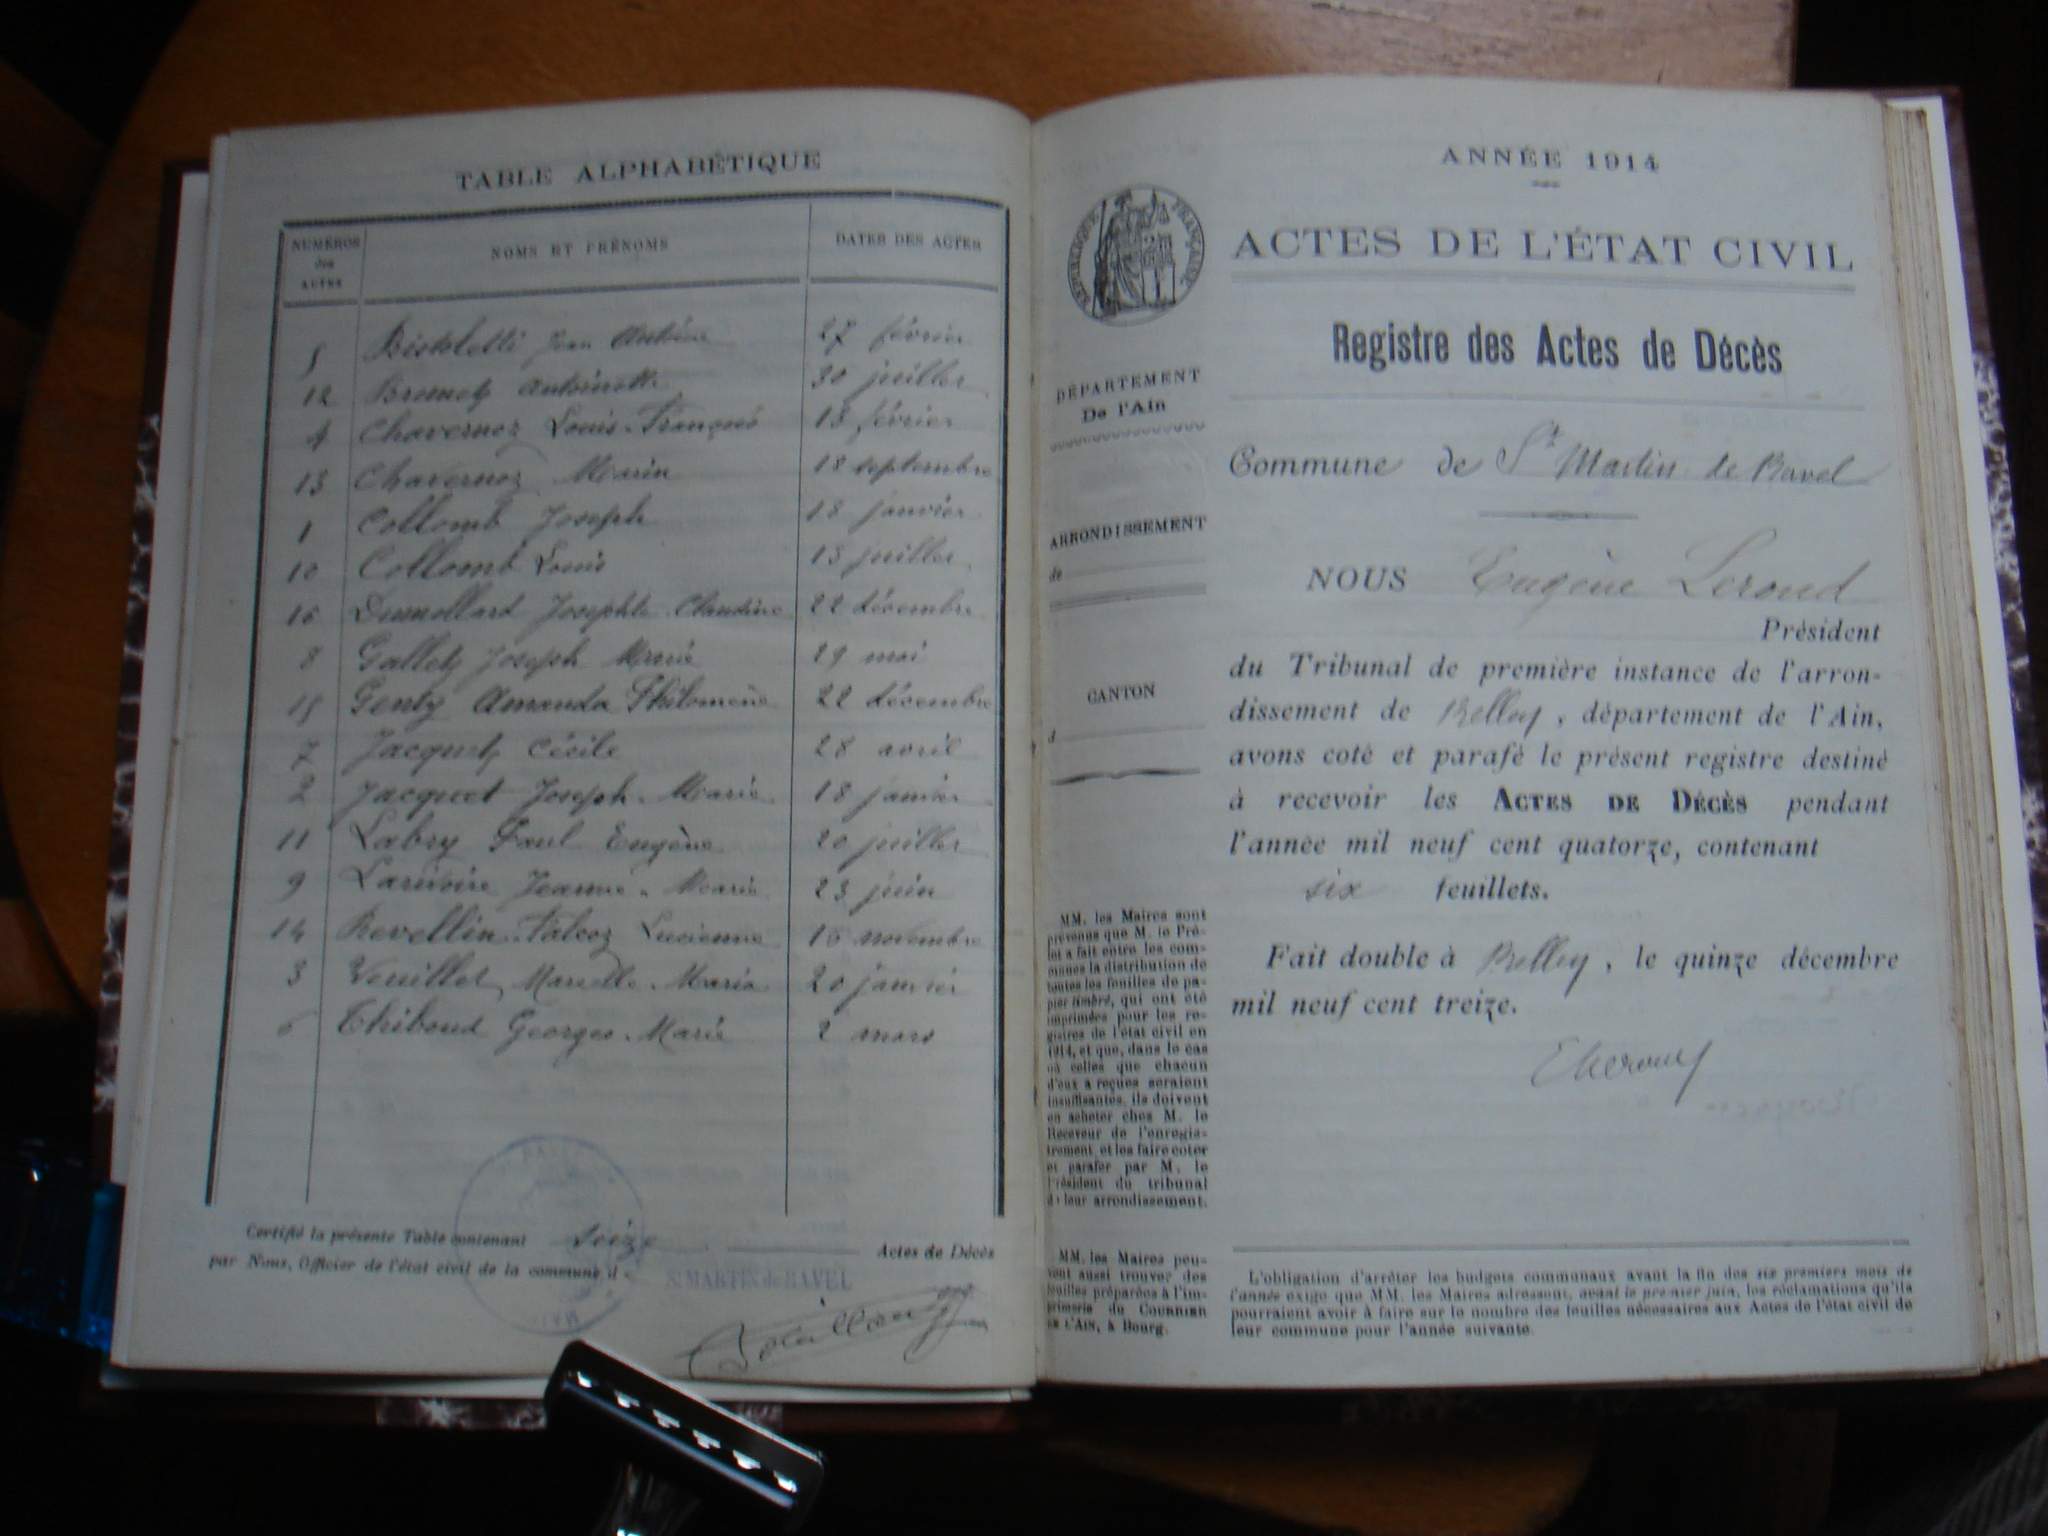 TABLE ALPHABÉTIQUE
NUMÉROS des ACTES NOMS ET PRÉNOMS DATES DES ACTES
5 Bistoletti Jean Antoine 27 février
12 Brunet Antoinette 30 juillet
4 Chavernoz Louis-François 13 février
13 Chavernoz Marin 18 septembre
1 Collomb Joseph 18 janvier
10 Collomb Louis 13 juillet
16 Dumollard Josephte-Claudine 22 décembre
8 Gallet Joseph Marie 29 mai
15 Genty Amanda Philomène 22 décembre
7 Jacquet Cécile 28 avril
2 Jacquet Joseph-Marie 18 janvier
11 Labry Paul Eugène 20 juillet
9 Larivoire Jeanne-Marie 23 juin
14 Revellin-Falcoz Lucienne 15 novembre
3 Veuillet Marcelle-Maria 20 janvier
6 Thiboud Georges-Marie 2 mars
Certifié la présente Table contenant seize Actes de Décès
par Nous, Officier de l'état civil de la commune d
ST MARTIN de BAVEL
ANNÉE 1914
RÉPUBLIQUE FRANÇAISE
ACTES DE L'ÉTAT CIVIL
Registre des Actes de Décès
DÉPARTEMENT
De l'Ain
Commune de St Martin de Bavel
ARRONDISSEMENT
de
CANTON
d
NOUS Eugène Leroud
Président
du Tribunal de première instance de l'arron-
dissement de Belley, département de l'Ain,
avons coté et parafé le présent registre destiné
à recevoir les ACTES DE DÉCÈS pendant
l'année mil neuf cent quatorze, contenant
six feuillets.
Fait double à Belley, le quinze décembre
mil neuf cent treize.
MM. les Maires sont
prévenus que M. le Pré-
fet a fait entre les com-
munes la distribution de
toutes les feuilles de pa-
pier timbré, qui ont été
imprimées pour les re-
gistres de l'état civil en
1914, et que, dans le cas
où celles que chacun
d'eux a reçues seraient
insuffisantes, ils doivent
en acheter chez M. le
Receveur de l'enregis-
trement et les faire coter
et parafer par M. le
Président du tribunal
de leur arrondissement.
MM. les Maires peu-
vent aussi trouver des
feuilles préparées à l'im-
primerie du COURRIER
DE L'AIN, à Bourg.
L'obligation d'arrêter les budgets communaux avant la fin des six premiers mois de
l'année exige que MM. les Maires adressent, avant le premier juin, les réclamations qu'ils
pourraient avoir à faire sur le nombre des feuilles nécessaires aux Actes de l'état civil de
leur commune pour l'année suivante.